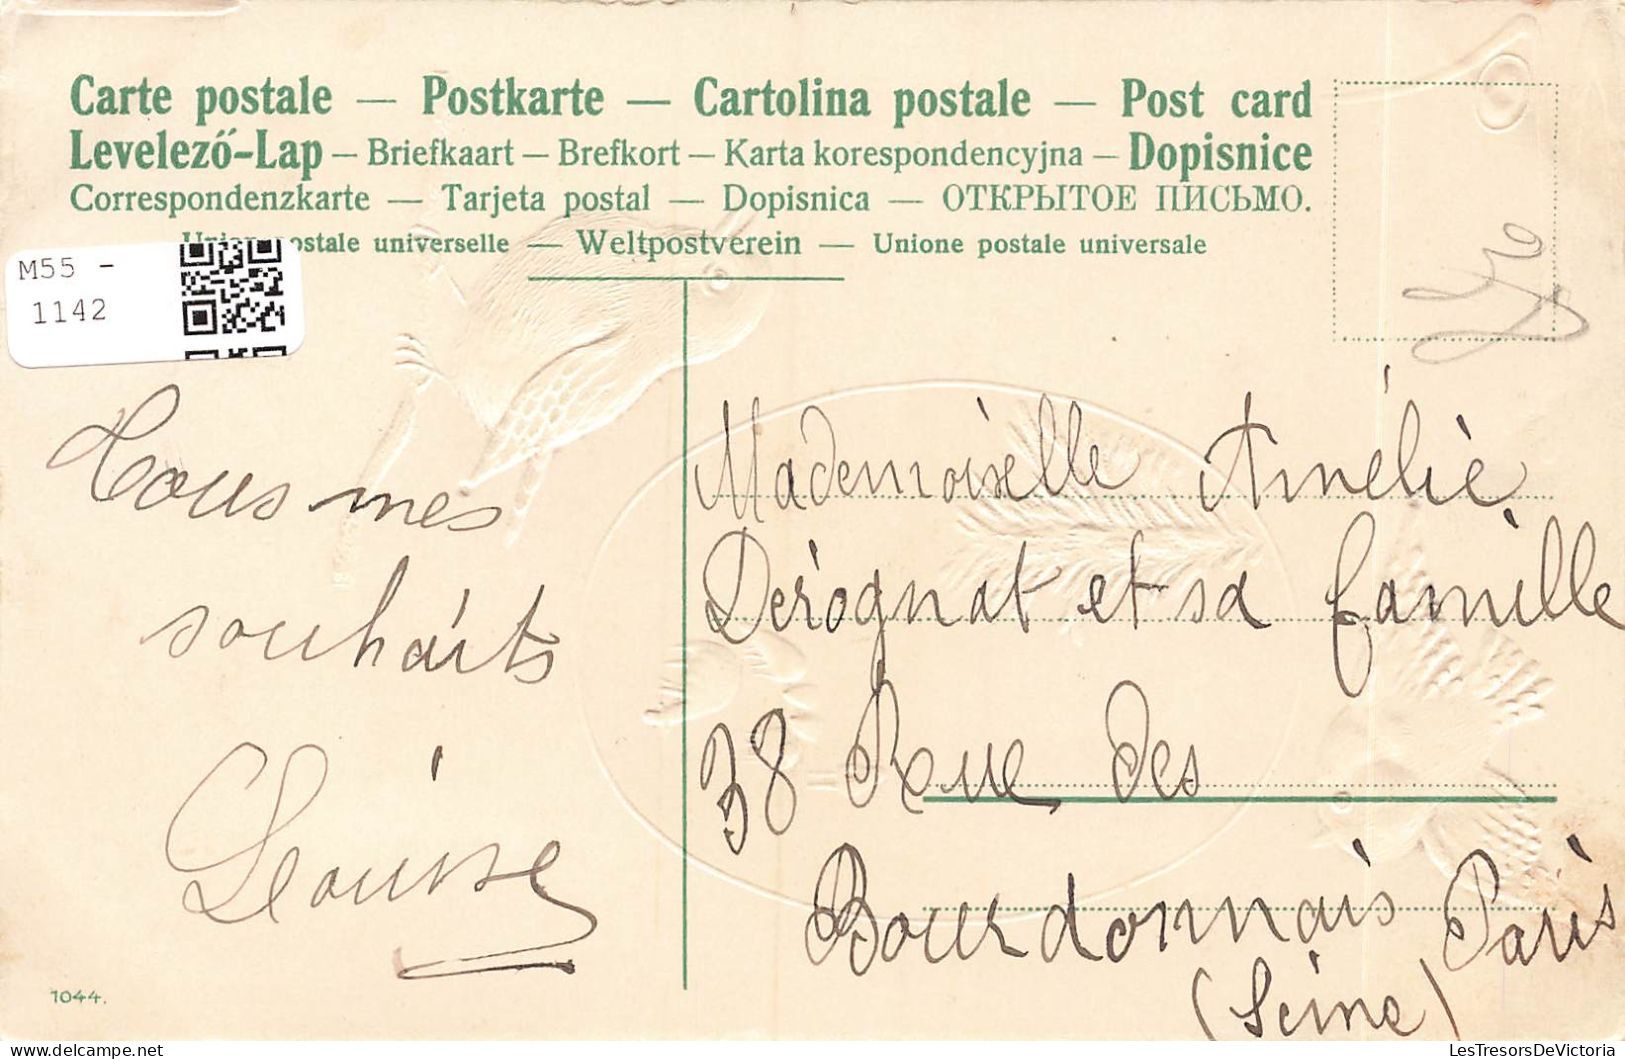 Carte postale — Postkarte — Cartolina postale — Post card
Levelező-Lap — Briefkaart — Brefkort — Karta korespondencyjna — Dopisnice
Correspondenzkarte — Tarjeta postal — Dopisnica — ОТКРЫТОЕ ПИСЬМО.
Union postale universelle — Weltpostverein — Unione postale universale
M55 -
1142
Tous mes
souhaits
Louise
1044.
Mademoiselle Amélie
Derognat et sa famille
38 Rue des
Bourdonnais Paris
(Seine)
LesTresorsDeVictoria
delcampe.net